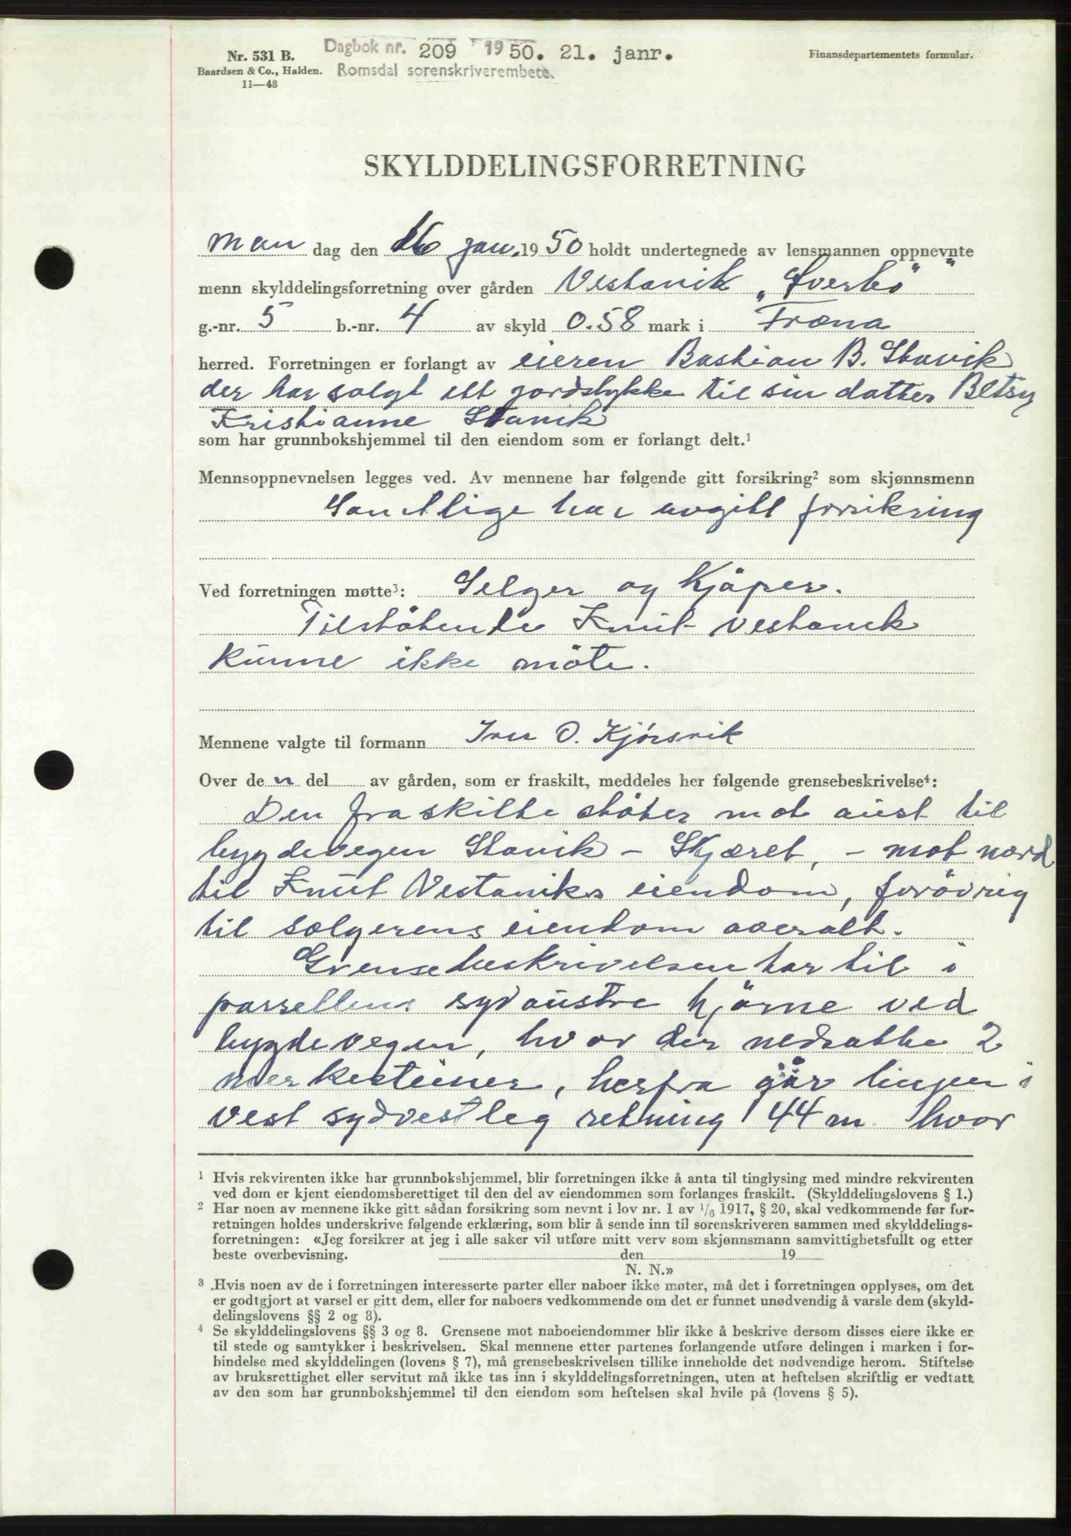 Nr. 531 B.
Baardsen & Co., Halden.
11—48
Dagbok nr. 209 1950. 21. janr.
Romsdal sorenskriverembete.
Finansdepartementets formular.
SKYLDDELINGSFORRETNING
Man dag den 16 jan. 1950 holdt undertegnede av lensmannen oppnevnte
menn skylddelingsforretning over gården Vestavik "Sverbo"
g.-nr. 5 b.-nr. 4 av skyld 0.58 mark i Fræna
herred. Forretningen er forlangt av eieren Bastian B. Stavik
der har solgt ett jordstykke til sin datter Betsy
Kristianne Stavik
som har grunnbokshjemmel til den eiendom som er forlangt delt.¹
Mennsoppnevnelsen legges ved. Av mennene har følgende gitt forsikring² som skjønnsmenn
Samtlige har avgitt forsikring
Ved forretningen møtte³: Selger og Kjöper.
Tilstötende Knut Vestavik
kunne ikke möte.
Mennene valgte til formann Iver O. Kjörsvik
Over den del av gården, som er fraskilt, meddeles her følgende grensebeskrivelse⁴:
Den fraskilte stöter mot aust til
bygdevegen Stavik - Skjæret, - mot nord
til Knut Vestaviks eiendom, forövrig
til sælgerens eiendom overalt.
Grensebeskrivelsen tar til i
parsellens sydaustre hjörne ved
bygdevegen, hvor der nedsatte 2
merkesteiner, herfra går linjen i
vest sydvestleg retning 44 m hvor
¹ Hvis rekvirenten ikke har grunnbokshjemmel, blir forretningen ikke å anta til tinglysing med mindre rekvirenten
ved dom er kjent eiendomsberettiget til den del av eiendommen som forlanges fraskilt. (Skylddelingslovens § 1.)
² Har noen av mennene ikke gitt sådan forsikring som nevnt i lov nr. 1 av 1/6 1917, § 20, skal vedkommende før for-
retningen holdes underskrive følgende erklæring, som blir å sende inn til sorenskriveren sammen med skylddelings-
forretningen: «Jeg forsikrer at jeg i alle saker vil utføre mitt verv som skjønnsmann samvittighetsfullt og etter
beste overbevisning. den 19
N. N.»
³ Hvis noen av de i forretningen interesserte parter eller naboer ikke møter, må det i forretningen opplyses, om det
er godtgjort at varsel er gitt dem, eller for naboers vedkommende om det er funnet unødvendig å varsle dem (skyld-
delingslovens §§ 2 og 8).
⁴ Se skylddelingslovens §§ 3 og 8. Grensene mot naboeiendommer blir ikke å beskrive dersom disses eiere ikke er
til stede og samtykker i beskrivelsen. Skal mennene etter partenes forlangende utføre delingen i marken i for-
bindelse med skylddelingen (lovens § 7), må grensebeskrivelsen tillike inneholde det nødvendige herom. Stiftelse
av bruksrettighet eller servitut må ikke tas inn i skylddelingsforretningen, uten at heftelsen skriftlig er vedtatt
av den som har grunnbokshjemmel til den eiendom som heftelsen skal hvile på (lovens § 5).